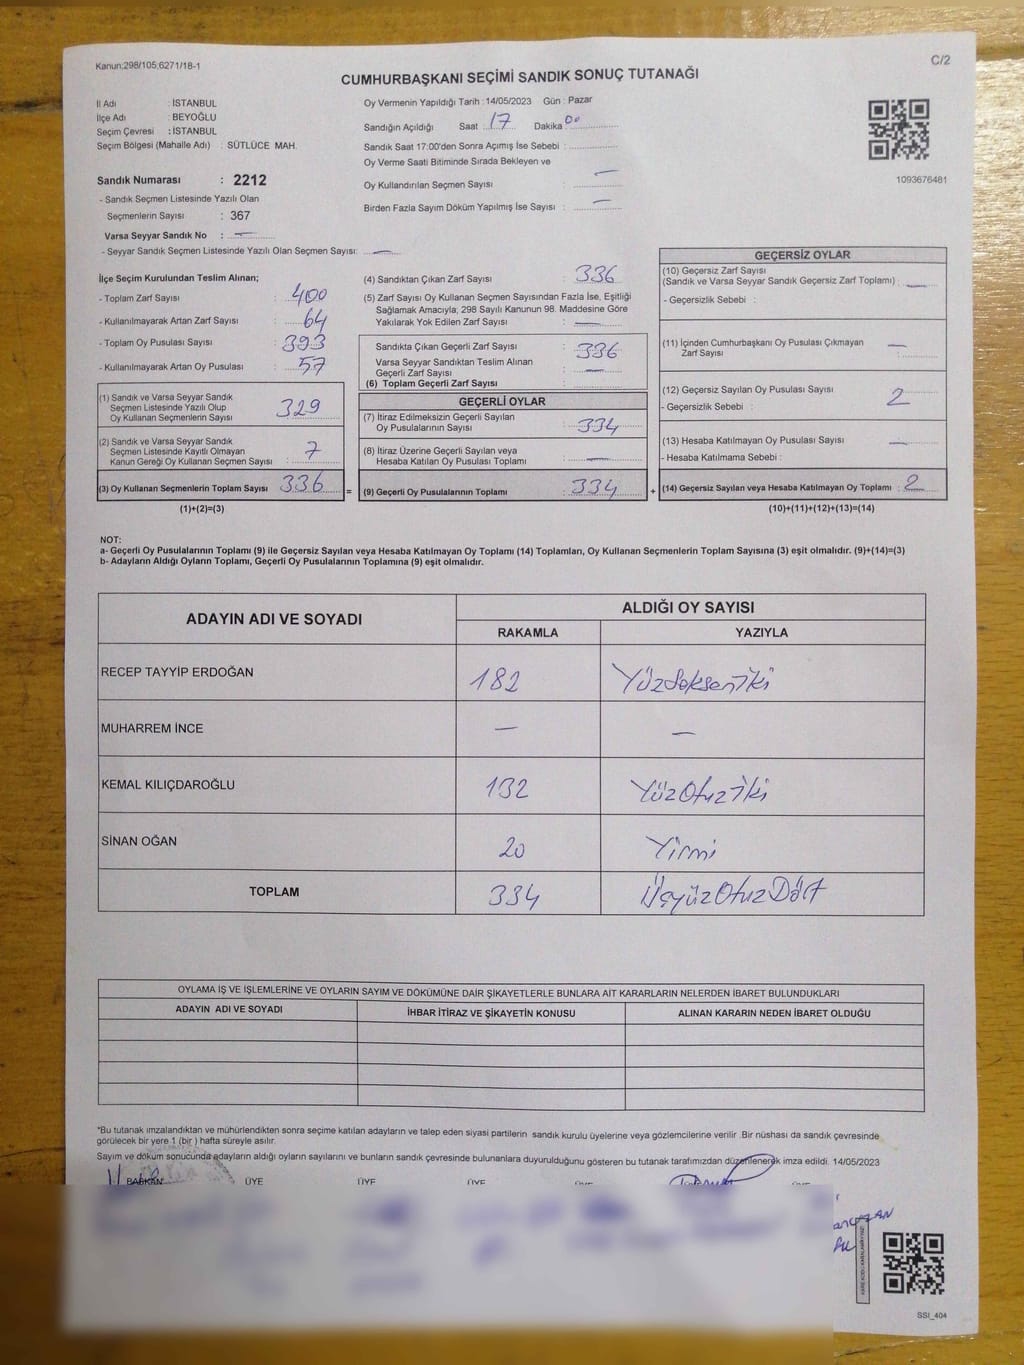 Kanun:298/105;6271/18-1
C/2
CUMHURBAŞKANI SEÇİMİ SANDIK SONUÇ TUTANAĞI
İl Adı : İSTANBUL
İlçe Adı : BEYOĞLU
Seçim Çevresi : İSTANBUL
Seçim Bölgesi (Mahalle Adı) : SÜTLÜCE MAH.
Oy Vermenin Yapıldığı Tarih : 14/05/2023 Gün : Pazar
Sandığın Açıldığı Saat : 17 Dakika 00
Sandık Saat 17:00'den Sonra Açımış İse Sebebi :
Oy Verme Saati Bitiminde Sırada Bekleyen ve
Oy Kullandırılan Seçmen Sayısı : —
Birden Fazla Sayım Döküm Yapılmış İse Sayısı : —
1093676481
Sandık Numarası : 2212
- Sandık Seçmen Listesinde Yazılı Olan
Seçmenlerin Sayısı : 367
Varsa Seyyar Sandık No : —
- Seyyar Sandık Seçmen Listesinde Yazılı Olan Seçmen Sayısı: —
İlçe Seçim Kurulundan Teslim Alınan;
- Toplam Zarf Sayısı : 400
- Kullanılmayarak Artan Zarf Sayısı : 64
- Toplam Oy Pusulası Sayısı : 393
- Kullanılmayarak Artan Oy Pusulası : 57
(1) Sandık ve Varsa Seyyar Sandık
Seçmen Listesinde Yazılı Olup
Oy Kullanan Seçmenlerin Sayısı : 329
(2) Sandık ve Varsa Seyyar Sandık
Seçmen Listesinde Kayıtlı Olmayan
Kanun Gereği Oy Kullanan Seçmen Sayısı : 7
(3) Oy Kullanan Seçmenlerin Toplam Sayısı : 336 =
(1)+(2)=(3)
(4) Sandıktan Çıkan Zarf Sayısı : 336
(5) Zarf Sayısı Oy Kullanan Seçmen Sayısından Fazla İse, Eşitliği
Sağlamak Amacıyla; 298 Sayılı Kanunun 98. Maddesine Göre
Yakılarak Yok Edilen Zarf Sayısı : —
Sandıkta Çıkan Geçerli Zarf Sayısı : 336
Varsa Seyyar Sandıktan Teslim Alınan
Geçerli Zarf Sayısı : —
(6) Toplam Geçerli Zarf Sayısı :
GEÇERLİ OYLAR
(7) İtiraz Edilmeksizin Geçerli Sayılan
Oy Pusulalarının Sayısı : 334
(8) İtiraz Üzerine Geçerli Sayılan veya
Hesaba Katılan Oy Pusulası Toplamı : —
(9) Geçerli Oy Pusulalarının Toplamı : 334 +
GEÇERSİZ OYLAR
(10) Geçersiz Zarf Sayısı
(Sandık ve Varsa Seyyar Sandık Geçersiz Zarf Toplamı) : —
- Geçersizlik Sebebi :
(11) İçinden Cumhurbaşkanı Oy Pusulası Çıkmayan
Zarf Sayısı : —
(12) Geçersiz Sayılan Oy Pusulası Sayısı : 2
- Geçersizlik Sebebi :
(13) Hesaba Katılmayan Oy Pusulası Sayısı : —
- Hesaba Katılmama Sebebi :
(14) Geçersiz Sayılan veya Hesaba Katılmayan Oy Toplamı : 2
(10)+(11)+(12)+(13)=(14)
NOT:
a- Geçerli Oy Pusulalarının Toplamı (9) ile Geçersiz Sayılan veya Hesaba Katılmayan Oy Toplamı (14) Toplamları, Oy Kullanan Seçmenlerin Toplam Sayısına (3) eşit olmalıdır. (9)+(14)=(3)
b- Adayların Aldığı Oyların Toplamı, Geçerli Oy Pusulalarının Toplamına (9) eşit olmalıdır.
ADAYIN ADI VE SOYADI
ALDIĞI OY SAYISI
RAKAMLA YAZIYLA
RECEP TAYYİP ERDOĞAN 182 Yüzseksen İki
MUHARREM İNCE — —
KEMAL KILIÇDAROĞLU 132 Yüz Otuz İki
SİNAN OĞAN 20 Yirmi
TOPLAM 334 Üçyüz Otuz Dört
OYLAMA İŞ VE İŞLEMLERİNE VE OYLARIN SAYIM VE DÖKÜMÜNE DAİR ŞİKAYETLERLE BUNLARA AİT KARARLARIN NELERDEN İBARET BULUNDUKLARI
ADAYIN ADI VE SOYADI İHBAR İTİRAZ VE ŞİKAYETİN KONUSU ALINAN KARARIN NEDEN İBARET OLDUĞU
*Bu tutanak imzalandıktan ve mühürlendikten sonra seçime katılan adayların ve talep eden siyasi partilerin sandık kurulu üyelerine veya gözlemcilerine verilir .Bir nüshası da sandık çevresinde
görülecek bir yere 1 (bir ) hafta süreyle asılır.
Sayım ve döküm sonucunda adayların aldığı oyların sayılarını ve bunların sandık çevresinde bulunanlara duyurulduğunu gösteren bu tutanak tarafımızdan düzenlenerek imza edildi. 14/05/2023
BAŞKAN ÜYE ÜYE ÜYE
SSI_404